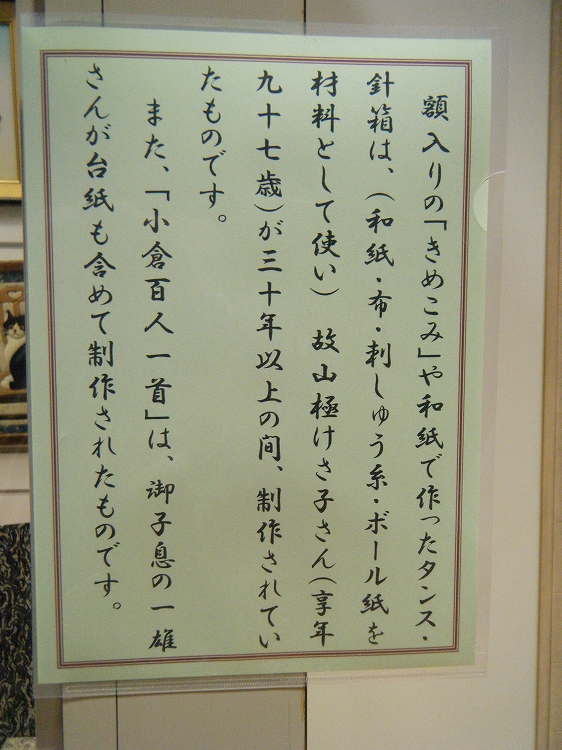 額入りの「きめこみ」や和紙で作ったタンス・
針箱は、(和紙・布・刺しゅう糸・ボール紙を
材料として使い) 故山極けさ子さん(享年
九十七歳)が三十年以上の間、制作されてい
たものです。
また、「小倉百人一首」は、御子息の一雄
さんが台紙も含めて制作されたものです。